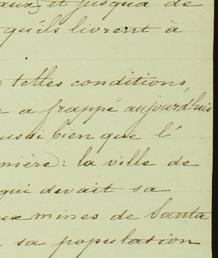 aux, et jusqu'à de
qu'ils livrent à
telles conditions,
a frappé aujourd'hui
aussi bien que l'
nière): la ville de
qui devait sa
ux mines de Santa
sa population